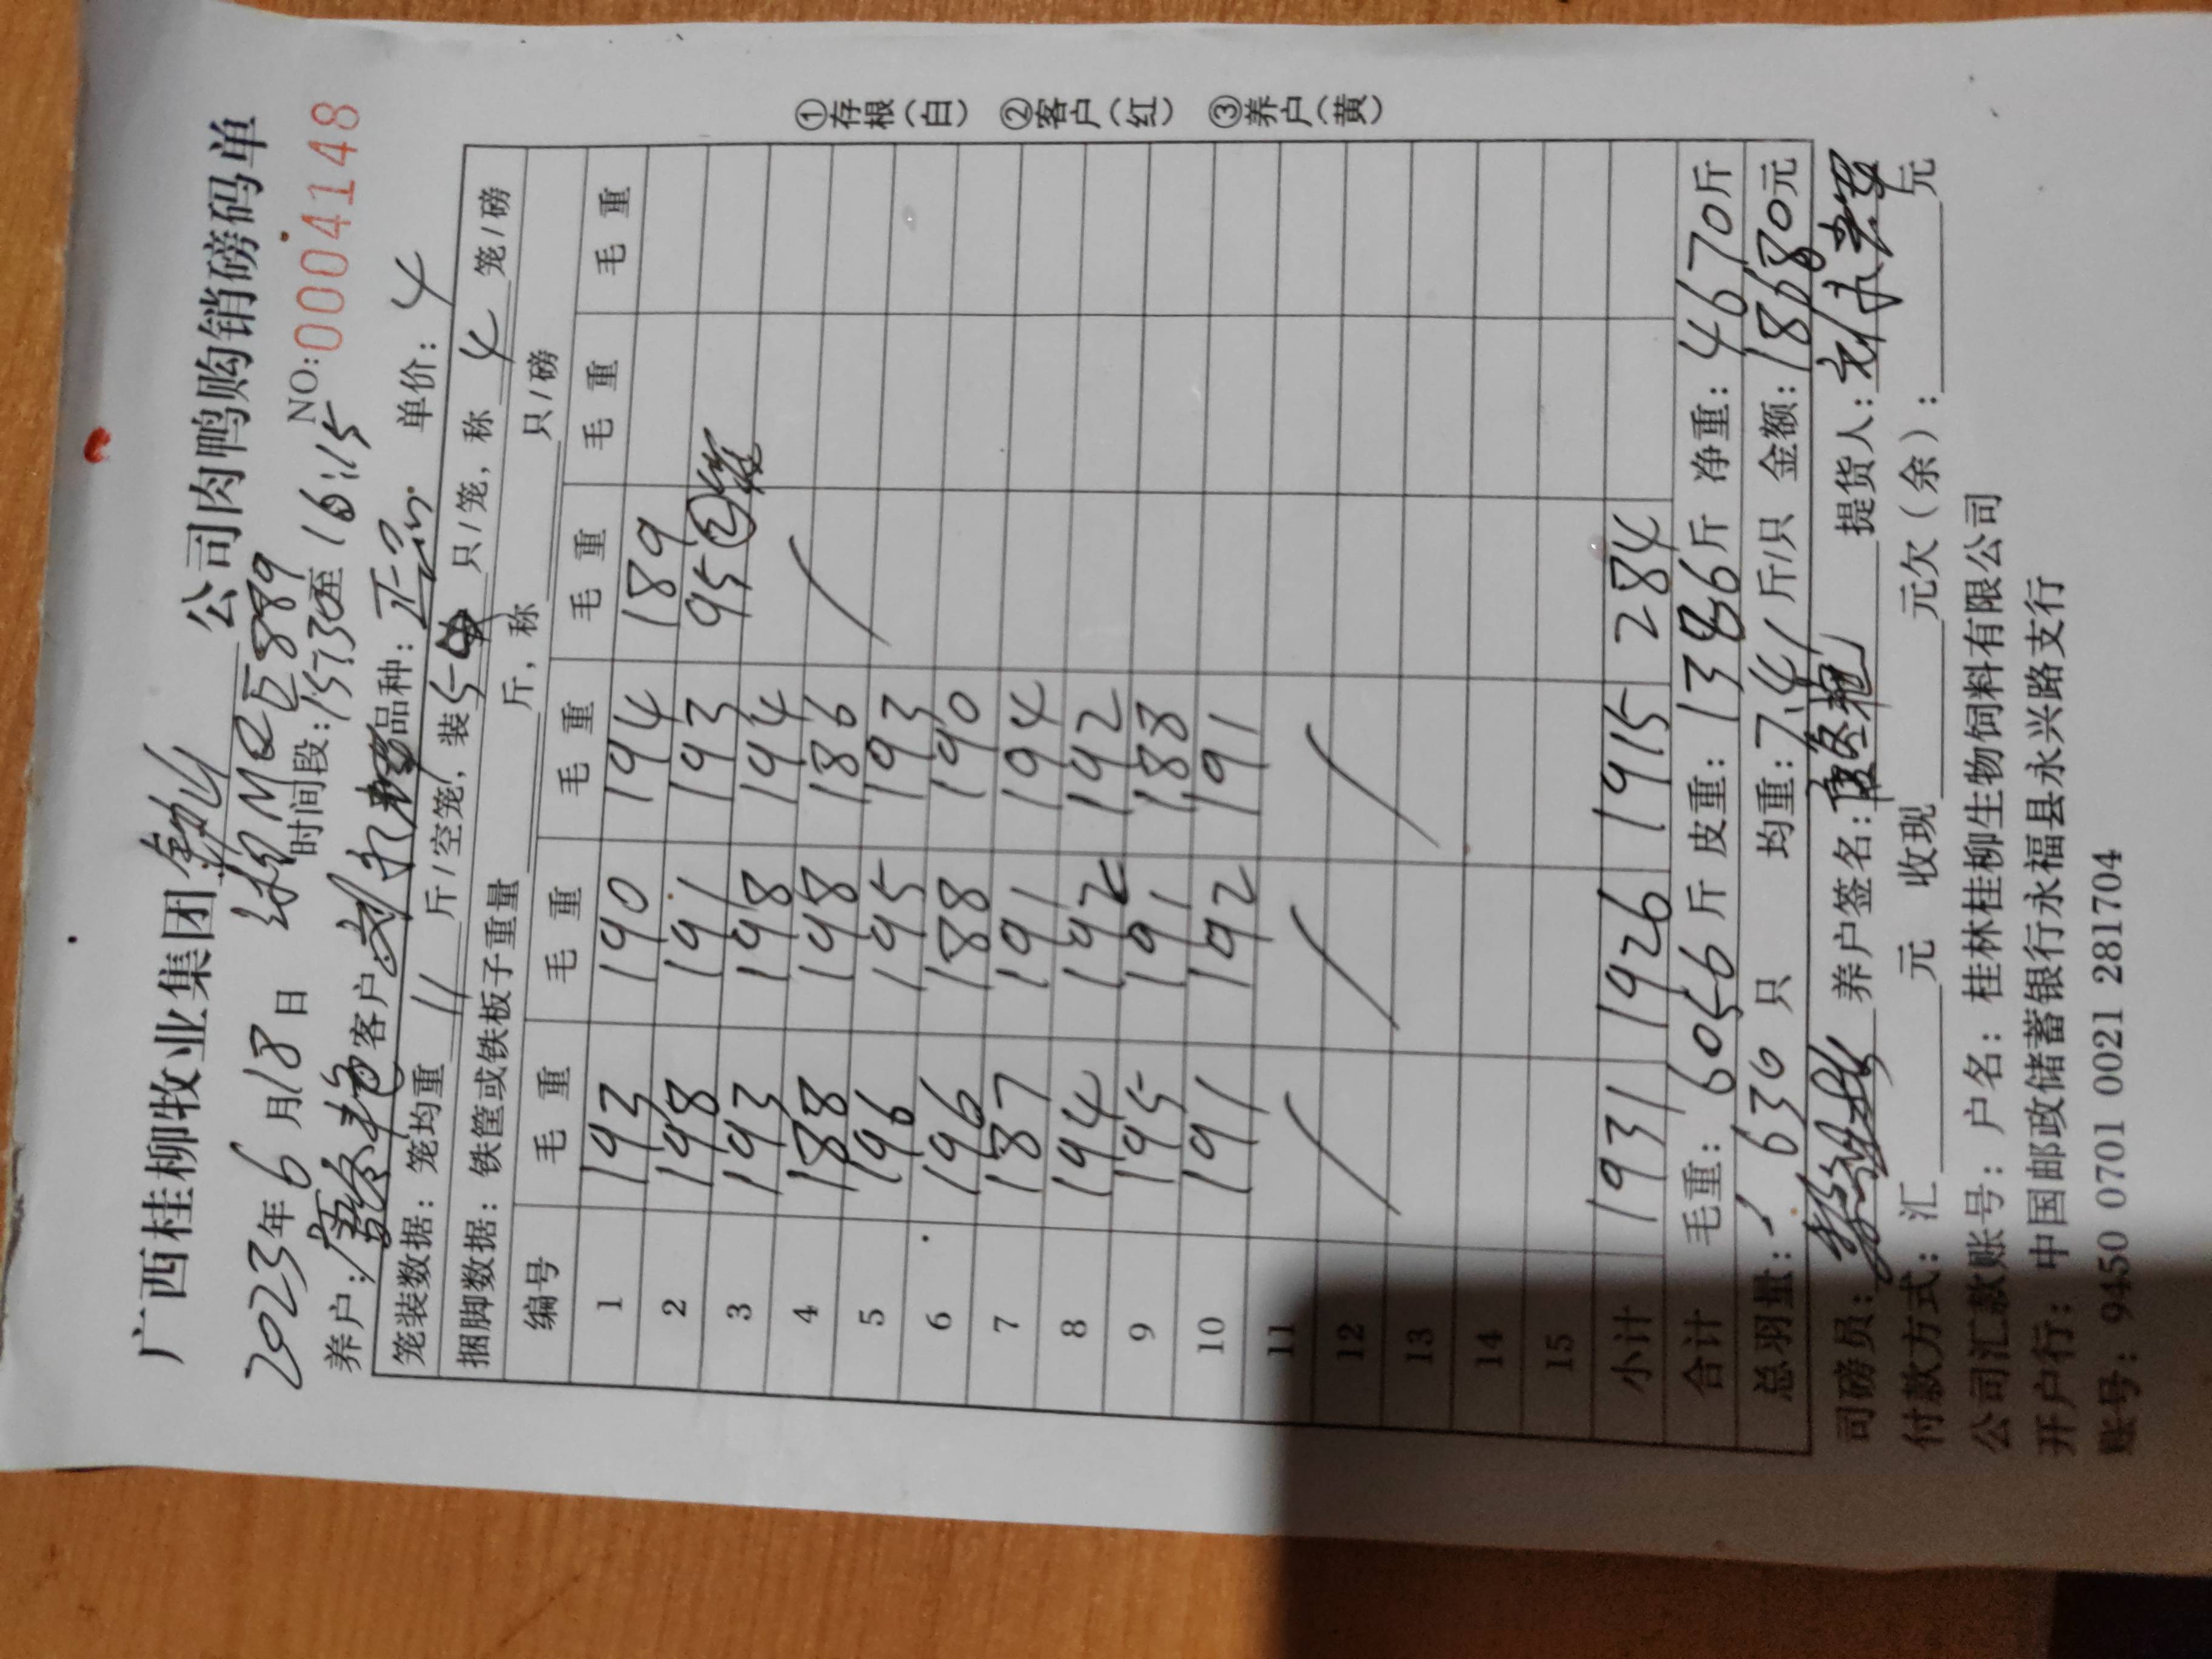 广西桂柳牧业集团 公司肉鸭购销磅码单
2023年6月18日 MQE889 NO:0004148
时间段:15:30至16:15
养户: 客户 品种: 单价:4
笼装数据:笼均重 11 斤/空笼,装 5 只/笼,称 4 笼/磅
捆脚数据:铁筐或铁板子重量 斤,称 只/磅
编号 毛重 毛重 毛重 毛重 毛重 毛重
1 193 190 194 189
2 198 191 193 95 ②笼
3 193 198 194
4 188 198 186
5 196 195 193
6 196 188 190
7 187 191 194
8 194 192 192
9 195 191 188
10 191 192 191
11
12
13
14
15
小计 1931 1926 1915 284
合计 毛重:6056斤 皮重:1386斤 净重:4670斤
总羽量:630只 均重:7.41斤/只 金额:18680元
司磅员: 养户签名: 提货人:
付款方式:汇 元 收现 元欠(余): 元
公司汇款账号:户名:桂林桂柳生物饲料有限公司
开户行:中国邮政储蓄银行永福县永兴路支行
账号:9450 0701 0021 281704
①存根(白) ②客户(红) ③养户(黄)